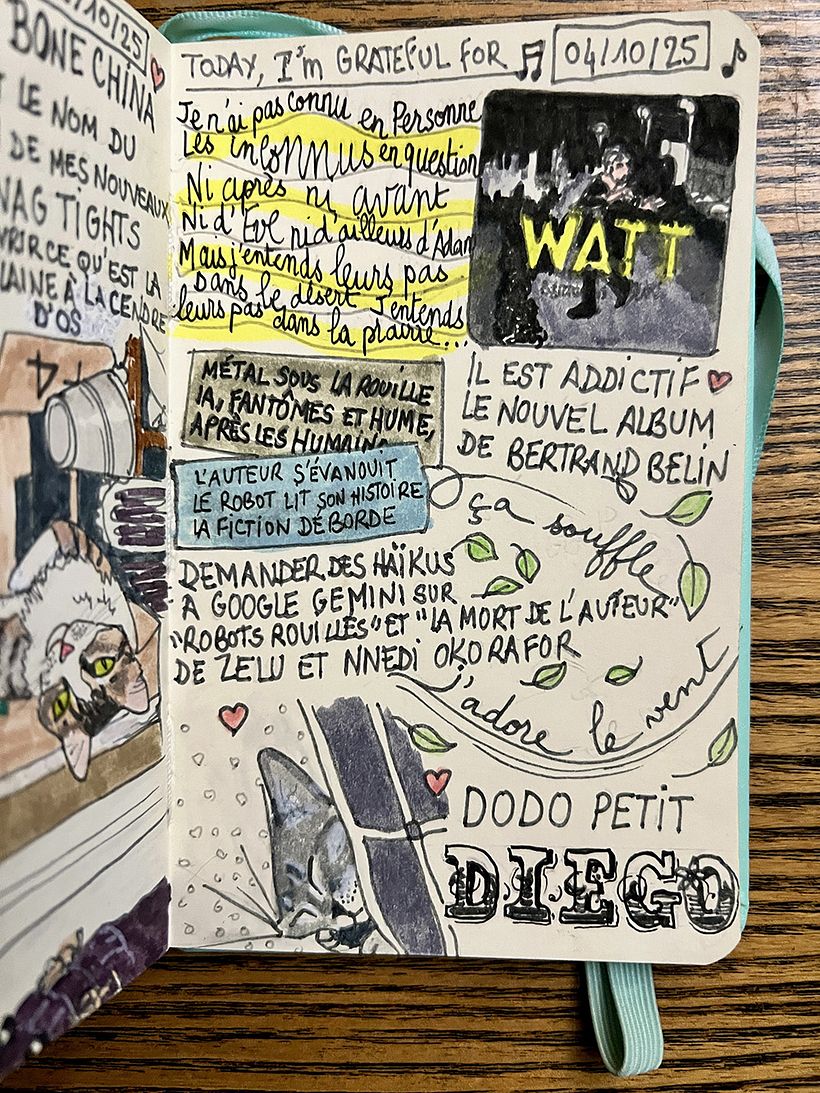 /10/25
BONE CHINA
LE NOM DU
DE MES NOUVEAUX
TIGHTS
CE QU'EST LA
LAINE À LA CENDRE
D'OS
4
TODAY, I'M GRATEFUL FOR
04/10/25
Je n'ai pas connu en Personne
Les inconnus en question
Ni après ni avant
Ni d'Eve ni d'ailleurs d'Adam
Mais j'entends leurs pas
Dans le désert J'entends
leurs pas dans la prairie...
WATT
IL EST ADDICTIF
LE NOUVEL ALBUM
DE BERTRAND BELIN
MÉTAL SOUS LA ROUILLE
IA, FANTÔMES ET HUME,
APRÈS LES HUMAINS
L'AUTEUR S'ÉVANOUIT
LE ROBOT LIT SON HISTOIRE
LA FICTION DÉBORDE
DEMANDER DES HAÏKUS
A GOOGLE GEMINI SUR
"ROBOTS ROUILLÉS" ET "LA MORT DE L'AUTEUR"
DE ZELU ET NNEDI OKORAFOR
ça souffle
j'adore le vent
DODO PETIT
DIEGO